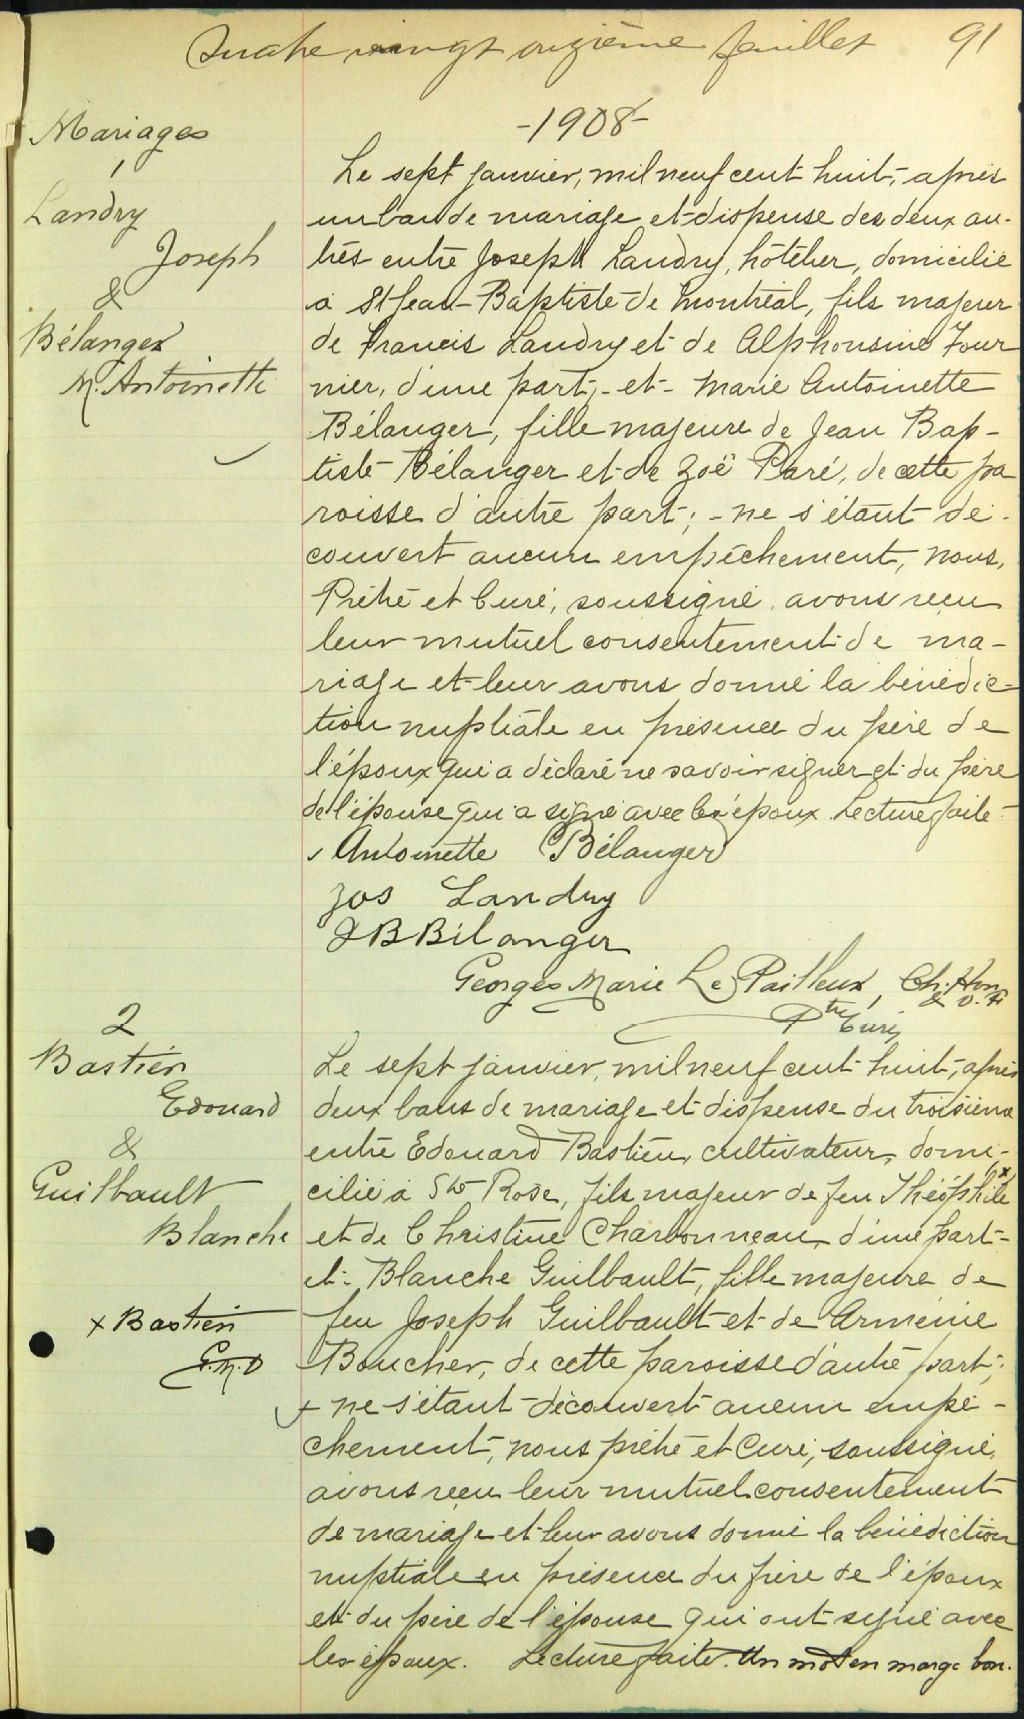 Quatre vingt onzième feuillet 91
Mariages
-1908-
1
Landry
Joseph
&
Bélanger
M. Antoinette
Le sept janvier, mil neuf cent huit, après
un ban de mariage et dispense des deux au-
tres entre Joseph Landry, hôtelier, domicilié
à St Jean-Baptiste de Montréal, fils majeur
de Francis Landry et de Alphonsine Four
nier, d'une part,- et- Marie Antoinette
Bélanger, fille majeure de Jean Bap-
tiste Bélanger et de Zoë Paré, de cette pa
roisse d'autre part; - ne s'étant dé-
couvert aucun empêchement, nous,
Prêtre et Curé, soussigné, avons reçu
leur mutuel consentement de ma-
riage et leur avons donné la bénédic-
tion nuptiale en présence du père de
l'époux qui a déclaré ne savoir signer et du père
de l'épouse qui a signé avec les époux. Lecture faite-
Antoinette Bélanger
Jos Landry
J B Bélanger
Georges Marie Le Pailleur, Ch. Hon
& V. F.
Ptre Curé
2
Bastien
Edouard
&
Guilbault
Blanche
x Bastien
G.M.D
Le sept janvier, mil neuf cent huit, après
deux bans de mariage et dispense du troisième
entre Edouard Bastien, cultivateur, domi-
cilié à Ste Rose, fils majeur de feu Théophile x
et de Christine Charbonneau, d'une part-
et- Blanche Guilbault, fille majeure de
feu Joseph Guilbault et de Arménie
Boucher, de cette paroisse d'autre part;
- ne s'étant découvert aucun empê-
chement, nous prêtre et Curé, soussigné,
avons reçu leur mutuel consentement
de mariage et leur avons donné la bénédiction
nuptiale en présence du frère de l'époux
et du père de l'épouse qui ont signé avec
les époux. Lecture faite. Un mot en marge bon.